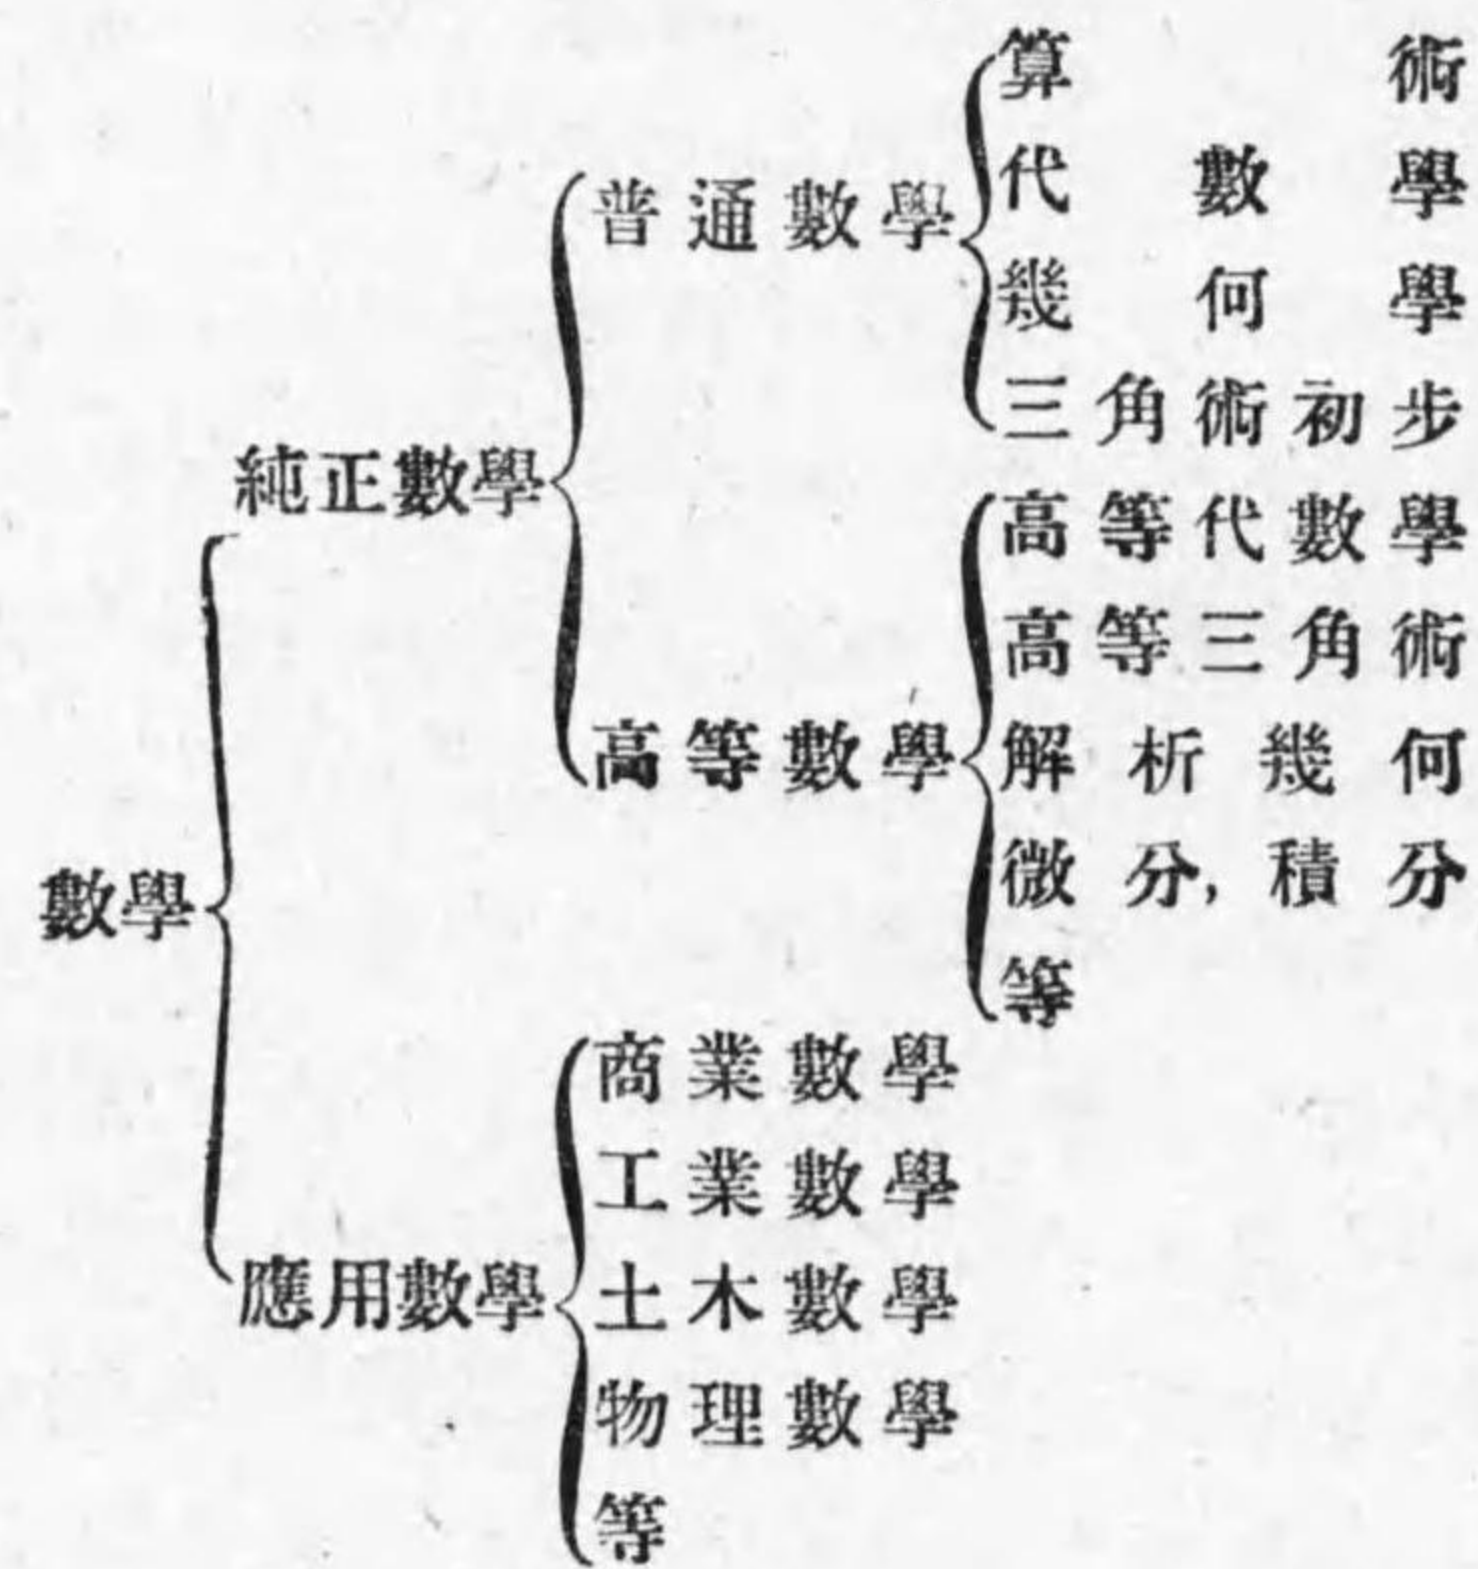 數學
純正數學
普通數學
算術
代數學
幾何學
三角術初步
高等數學
高等代數學
高等三角術
解析幾何
微分,積分
等
應用數學
商業數學
工業數學
土木數學
物理數學
等